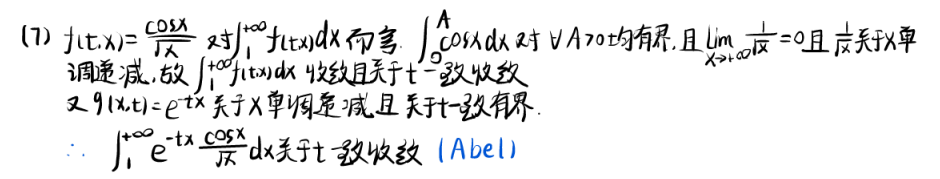 (7) f(t,x)=cosx/√x 对于∫₁^{+∞}f(t,x)dx而言. ∫₀^A cosxdx 对于∀A>0均有界,且lim_{x→+∞}1/√x=0且1/√x关于x单
调递减,故∫₁^{+∞}f(t,x)dx 收敛且关于t一致收敛
又g(x,t)=e^{-tx}关于x单调递减且关于t一致有界.
∴ ∫₁^{+∞}e^{-tx}cosx/√x dx关于t一致收敛 (Abel)